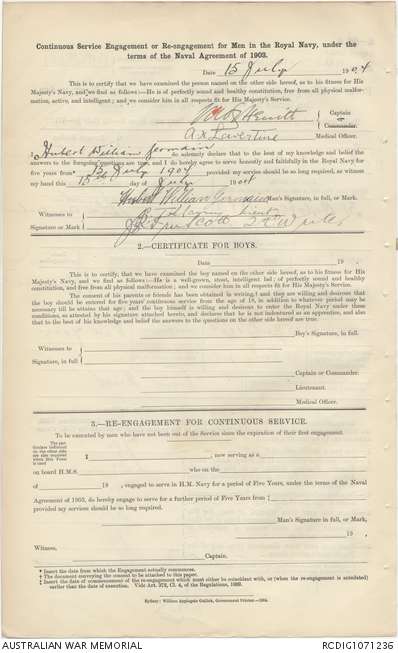 Continuous Service Engagement or Re-engagement for Men in the Royal Navy, under the
terms of the Naval Agreement of 1903.
Date 15 July 1904
This is to certify that we have examined the person named on the other side hereof, as to his fitness for His
Majesty's Navy, and we find as follows:—He is of perfectly sound and healthy constitution, free from all physical malfor-
mation, active, and intelligent; and we consider him in all respects fit for His Majesty's Service.
Hewitt Captain
or
Commander.
Medical Officer.
I Hubert William Germain do solemnly declare that to the best of my knowledge and belief the
answers to the foregoing questions are true, and I do hereby agree to serve honestly and faithfully in the Royal Navy for
five years from 15th July 1904 provided my service should be so long required, as witness
my hand this 15th day of July 1904
Hubert William Germain Man's Signature, in full.
Witnesses to
Signature or Mark
2.—CERTIFICATE FOR BOYS.
Date 19 .
This is to certify, that we have examined the boy named on the other side hereof, as to his fitness for His
Majesty's Navy, and we find as follows:—He is a well-grown, stout, intelligent lad; of perfectly sound and healthy
constitution, and free from all physical malformation; and we consider him in all respects fit for His Majesty's Service.
The consent of his parents or friends has been obtained in writing,† and they are willing and desirous that
the boy should be entered for five years' continuous service from the age of 18, in addition to whatever period may be
necessary till he attain that age; and the boy himself is willing and desirous to enter the Royal Navy under these
conditions, as attested by his signature attached hereto, and declares that he is not indentured as an apprentice, and also
that to the best of his knowledge and belief the answers to the questions on the other side hereof are true.
Boy's Signature, in full.
Witnesses to
Signature, in full
Captain or Commander.
Lieutenant.
Medical Officer.
3.—RE-ENGAGEMENT FOR CONTINUOUS SERVICE.
To be executed by men who have not been out of the Service since the expiration of their first engagement.
The particulars indicated on the other side are also required when this Form is used
I, , now serving as a
on board H.M.S. who on the
of 19 , engaged to serve in H.M. Navy for a period of Five Years, under the terms of the Naval
Agreement of 1903, do hereby engage to serve for a further period of Five Years from ‡
provided my services should be so long required.
Man's Signature in full, or Mark,
19 .
Witness,
Captain,
* Insert the date from which the Engagement actually commences.
† The document conveying the consent to be attached to this paper.
‡ Insert the date of commencement of the re-engagement which must either be coincident with, or (when the re-engagement is antedated)
earlier than the date of execution. Vide Art. 373, Cl. 4, of the Regulations, 1899.
Sydney: William Applegate Gullick, Government Printer.—1904.
AUSTRALIAN WAR MEMORIAL
RCDIG1071236